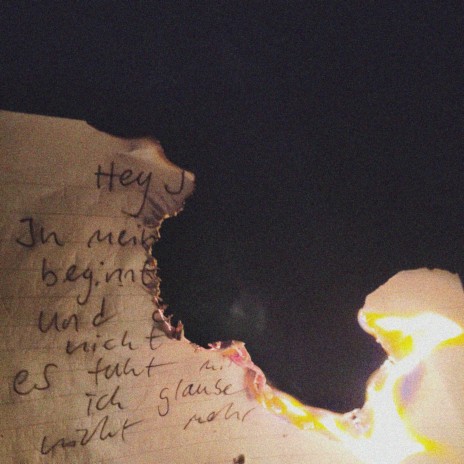 Hey J
In mein
beginnt
und
nicht
es tuht
ich glaube
nicht mehr